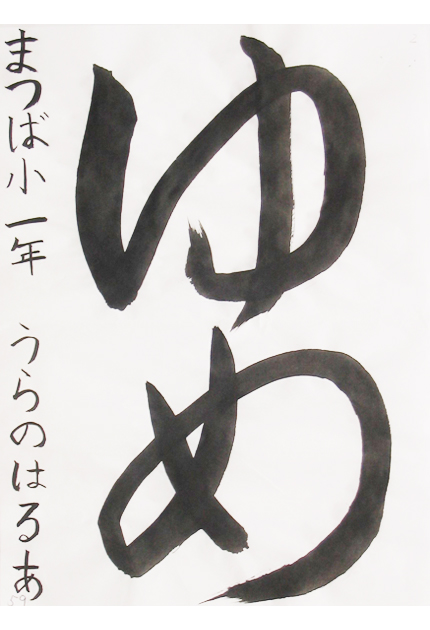 ゆめ
まつば小 一年 うらのはるあ
59